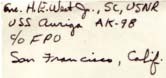 Ens. H. E. West Jr., SC, USNR
USS Auriga AK-98
c/o FPO
San Francisco, Calif